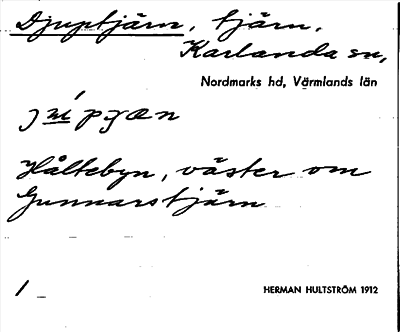 Djuptjärn, tjärn,
Karlanda sn,
Nordmarks hd, Värmlands län
Håltebyn, väster om
Gunnarstjärn
1
HERMAN HULTSTRÖM 1912